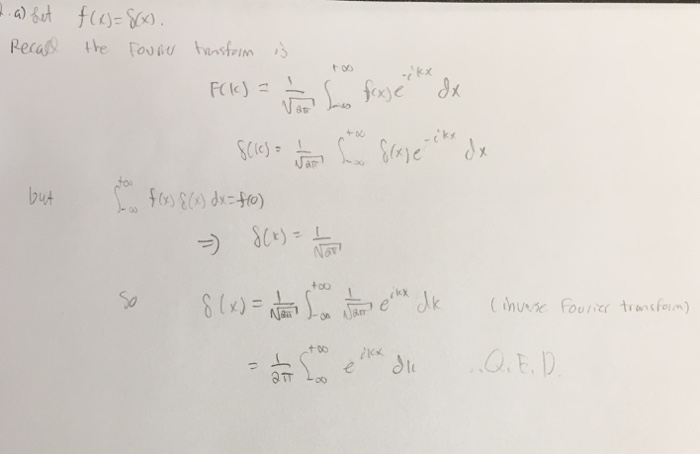 2.a) Let f(x)=δ(x).
Recall the Fourier transform is
F(k) = 1/√2π ∫_{-∞}^{+∞} f(x)e^{-ikx} dx
δ(k) = 1/√2π ∫_{-∞}^{+∞} δ(x)e^{-ikx} dx
but ∫_{-∞}^{+∞} f(x)δ(x) dx = f(0)
⇒ δ(k) = 1/√2π
So δ(x) = 1/√2π ∫_{-∞}^{+∞} 1/√2π e^{ikx} dk (inverse Fourier transform)
= 1/2π ∫_{-∞}^{+∞} e^{ikx} dk ..Q.E.D.